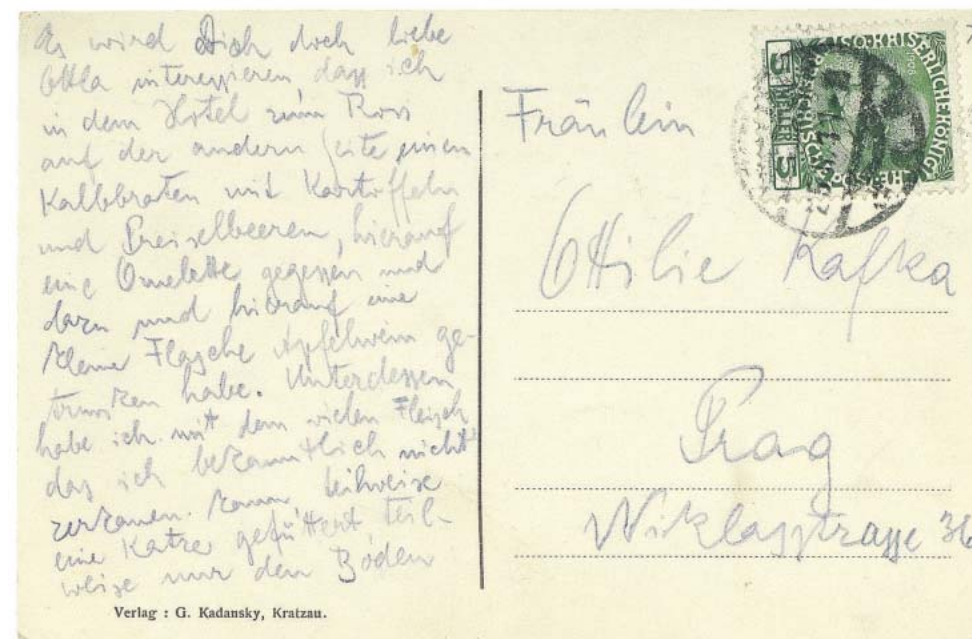 Es wird Dich doch liebe
Ottla interessieren, dass ich
in dem Hotel zum Ross
auf der andern Seite einen
Kalbsbraten mit Kartoffeln
und Preiselbeeren, hierauf
eine Omelette gegessen und
dazu und hierauf eine
kleine Flasche Apfelwein ge-
trunken habe. Unterdessen
habe ich mit dem vielen Fleisch
das ich bekanntlich nicht
zerkauen kann, teilweise
eine Katze gefüttert teil-
weise nur den Boden
Verlag : G. Kadansky, Kratzau.
Fräulein
Ottilie Kafka
Prag
Niklasstrasse 36
5 HELLER 5